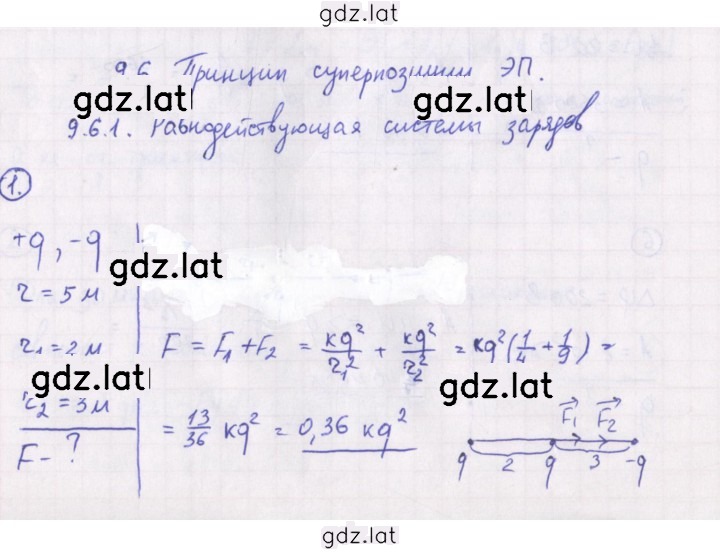 gdz.lat
9.6 Принцип суперпозиции ЭП.
gdz.lat
9.6.1. Равнодействующая системы зарядов
1.
+q, -q
gdz.lat
r = 5 м
r₁ = 2 м F = F₁ + F₂ = kq²/r₁² + kq²/r₂² = kq²(1/4 + 1/9) =
gdz.lat gdz.lat
r₂ = 3 м = 13/36 kq² = 0,36 kq²
F - ?
F₁ F₂
q 2 q 3 -q
gdz.lat